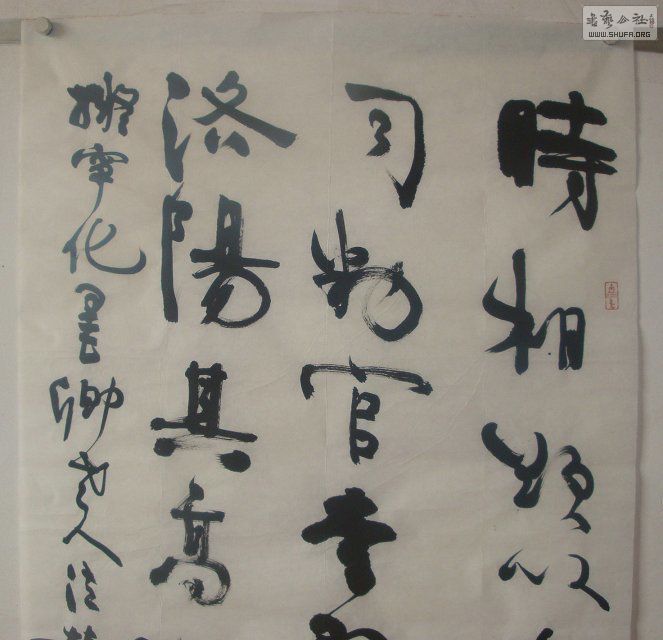 書藝公社
WWW.SHUFA.ORG
時相頗以
司勅官
洛陽其高
擬寧化墨卿老人法